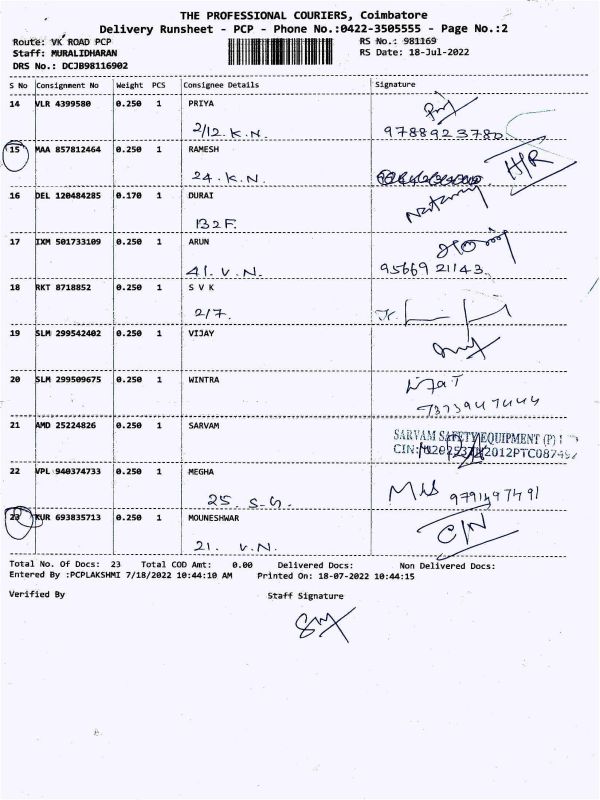 THE PROFESSIONAL COURIERS, Coimbatore
Delivery Runsheet - PCP - Phone No.:0422-3505555 - Page No.:2
Route: VK ROAD PCP RS No.: 981169
Staff: MURALIDHARAN RS Date: 18-Jul-2022
DRS No.: DCJB98116902
S No Consignment No Weight PCS Consignee Details Signature
14 VLR 4399580 0.250 1 PRIYA
2/12. K.N. 9788923780
15 MAA 857812464 0.250 1 RAMESH
24. K.N.
16 DEL 120484285 0.170 1 DURAI
B2F.
17 IXM 501733109 0.250 1 ARUN
41. V.N. 9566921143
18 RKT 8718852 0.250 1 S V K
2/7.
19 SLM 299542402 0.250 1 VIJAY
20 SLM 299509675 0.250 1 WINTRA
21 AMD 25224826 0.250 1 SARVAM
SARVAM SAFETY EQUIPMENT (P)
22 VPL 940374733 0.250 1 MEGHA
25. S.G.
23 KUR 693835713 0.250 1 MOUNESHWAR
C/N
21. V.N.
Total No. Of Docs: 23 Total COD Amt: 0.00 Delivered Docs: Non Delivered Docs:
Entered By :PCPLAKSHMI 7/18/2022 10:44:10 AM Printed On: 18-07-2022 10:44:15
Verified By Staff Signature